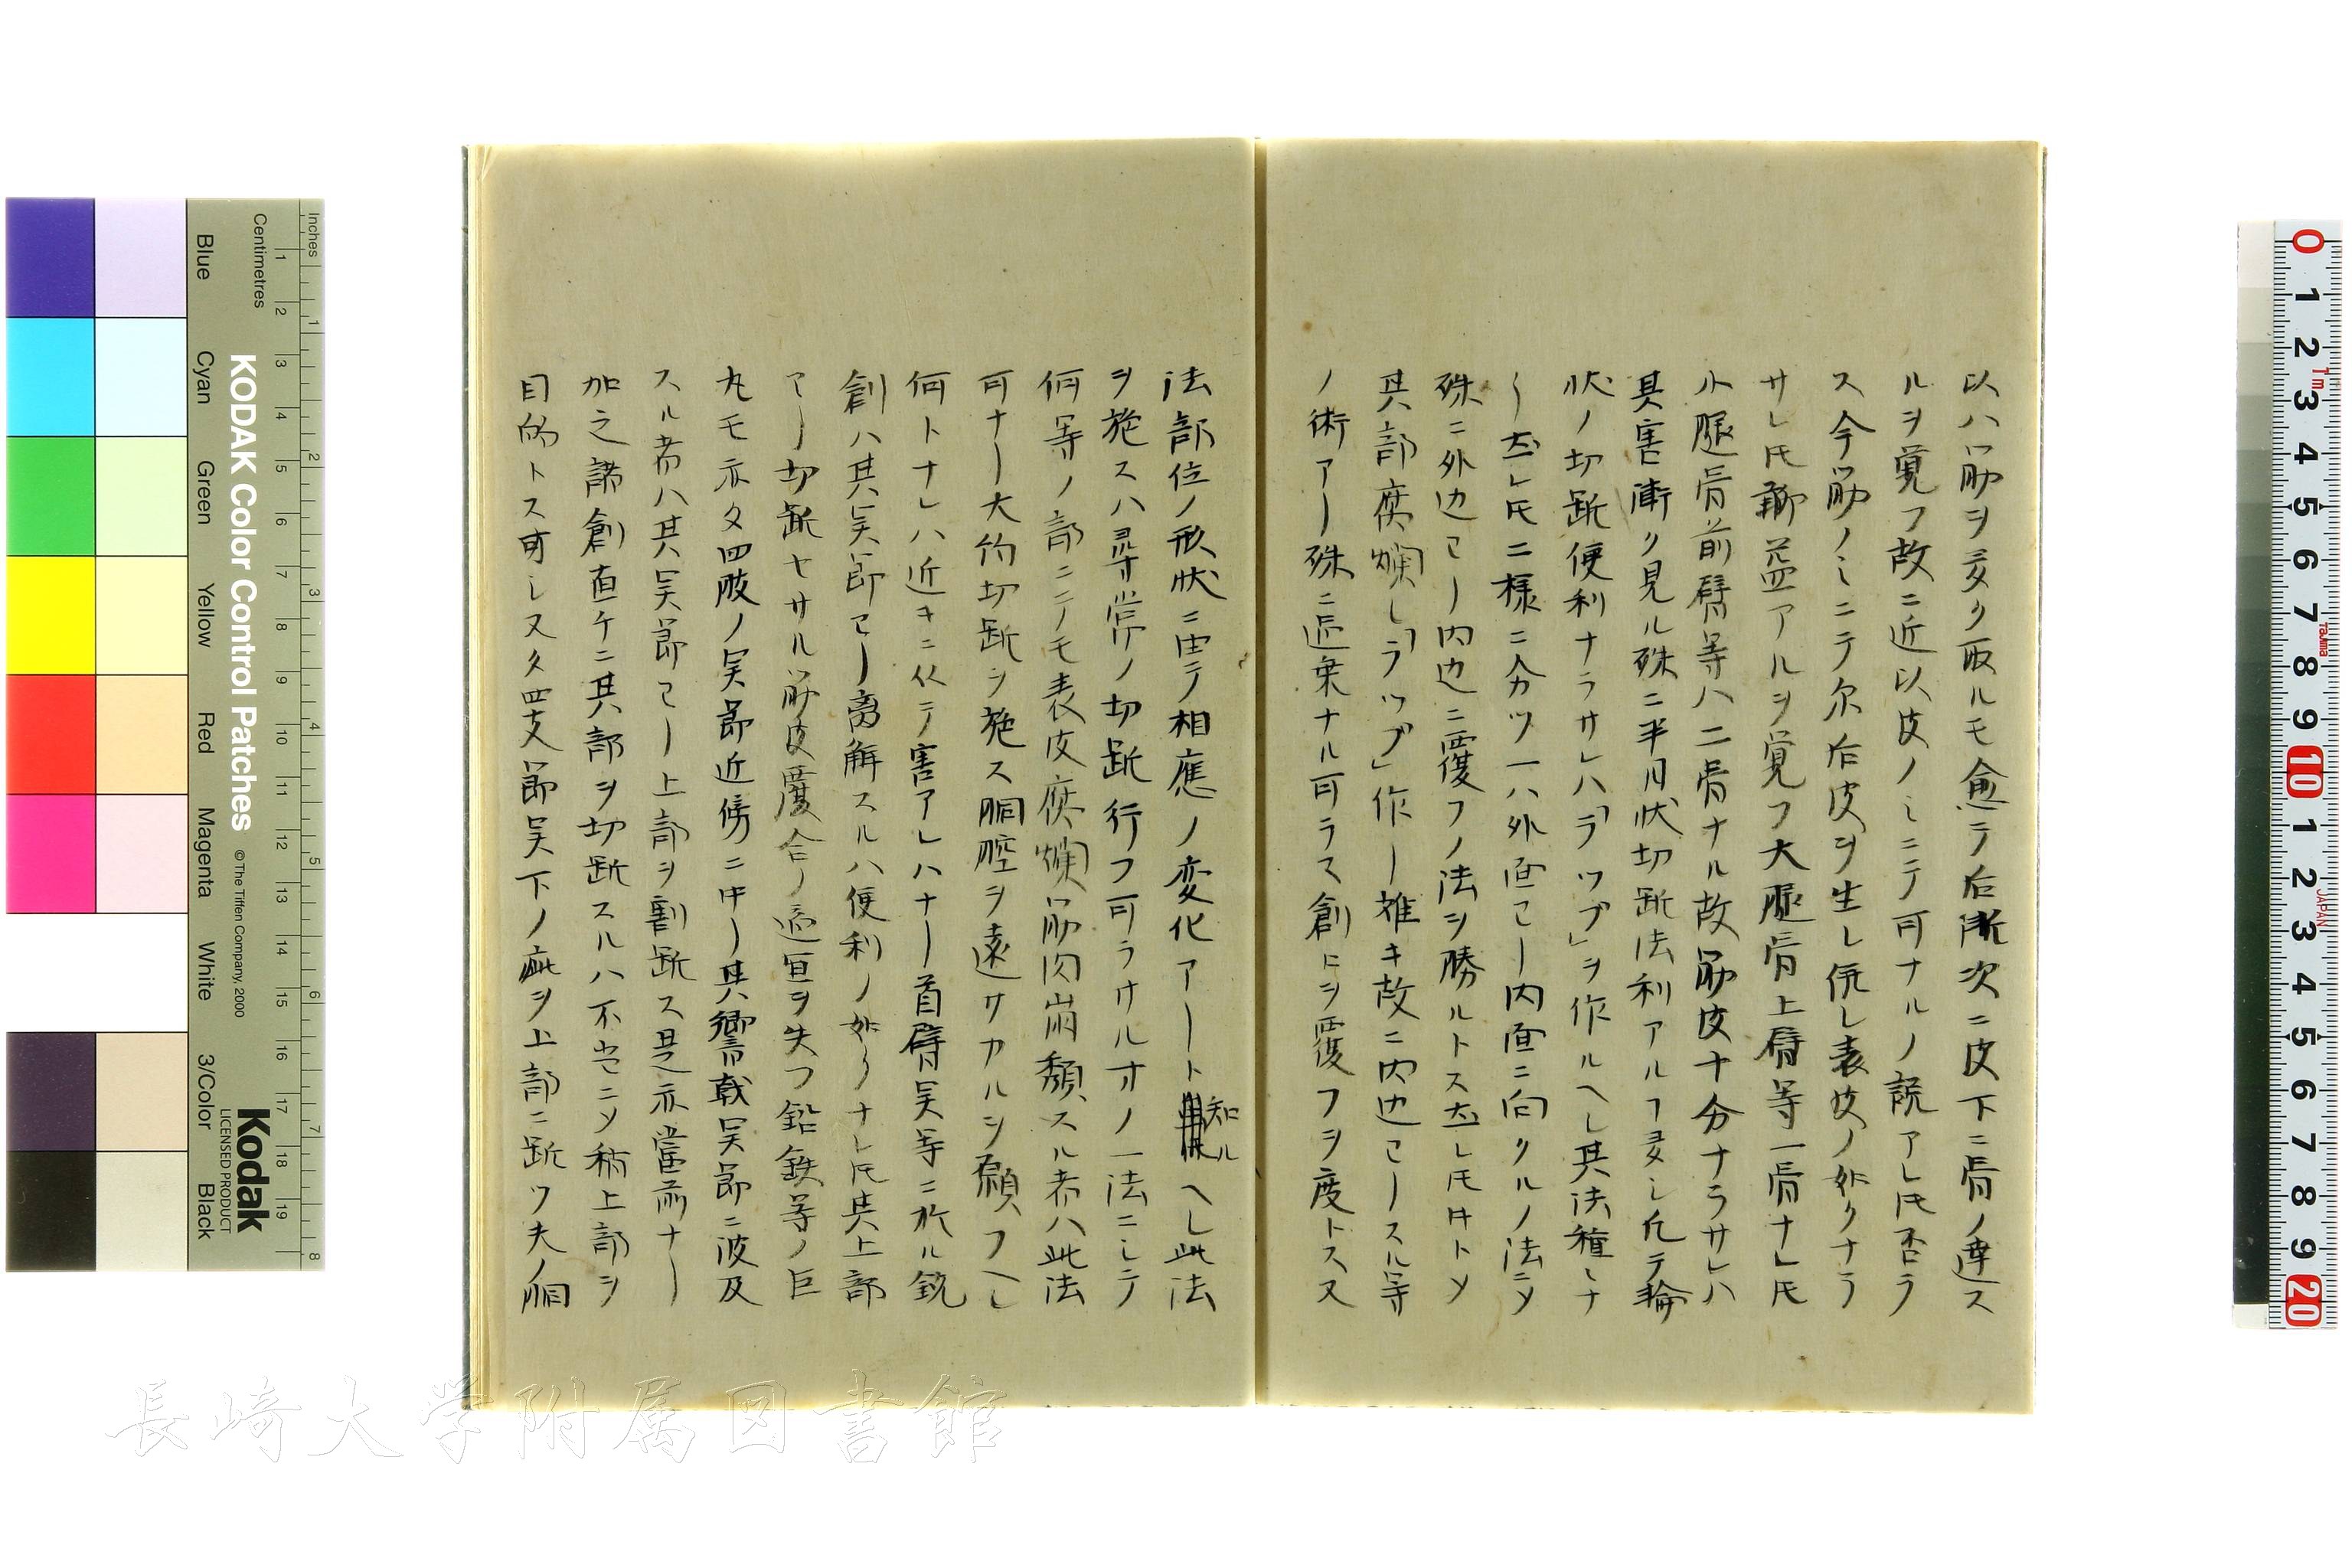 以ハ筋ヲ受ク取ルモ愈テ后漸次ニ皮下ニ骨ノ達ス
ルヲ覚フ故ニ近以皮ノミニテ可ナルノ説アレ𪜈否ラ
ス今筋ノミニテ尓后皮ヲ生レ併レ表皮ノ如クナラ
サレ𪜈聊益アルヲ覚フ大腿骨上臂等一骨ナレ𪜈
小腿骨前臂等ハ二骨ナル故筋皮十分ナラサレハ
其害漸ク見ル殊ニ半月状切断法利アルヿ多シ凡テ輪
状ノ切断便利ナラサレハ「ラツプ」ヲ作ルヘし其法種〻ナ
リ 𪜈二様ニ分ツ一ハ外面ヨリ内面ニ向クルノ法ニ〆
殊ニ外辺ヨリ内辺ニ覆フノ法ヲ勝ルトス 𪜈 ト〆
其部腐爛し「ラツプ」作リ難キ故ニ内辺ヨリスル等
ノ術アリ殊ニ 棄ナル可ラス創口ヲ覆フヲ度トス又
法部位ノ形状ニ由テ相應ノ変化アリト知ルヘし此法
ヲ施スハ尋常ノ切断行フ可ラサルオノ一法ニシテ
何等ノ部ニテモ表皮腐爛筋肉崩頽スル者ハ此法
可ナリ大約切断ヲ施ス胴腔ヲ遠サカルヲ願フヘし
何トナレハ近キニ从テ害アレハナリ首臂関等ニ於ル銃
創ハ其関節ヨリ離解スルハ便利ノ如クナレ𪜈其上部
ヨリ切断セサル筋皮覆合ノ適宜ヲ失フ鉛鉄等ノ巨
丸モ亦タ四肢ノ関節近傍ニ中リ其響戟関節ニ波及
スル者ハ其関節ヨリ上部ヲ割断ス是亦當前ナリ
加之諸創直チニ其部ヲ切断スルハ不宜ニ〆稍上部ヲ
目的トス可し又タ四支節関下ノ疵ヲ上部ニ断ツ夫ノ胴
長崎大学附属図書館
KODAK Color Control Patches
©The Tiffen Company, 2000
Kodak
LICENSED PRODUCT
Inches
Centimetres
Blue
Cyan
Green
Yellow
Red
Magenta
White
3/Color
Black
1m
Tajima
JAPAN